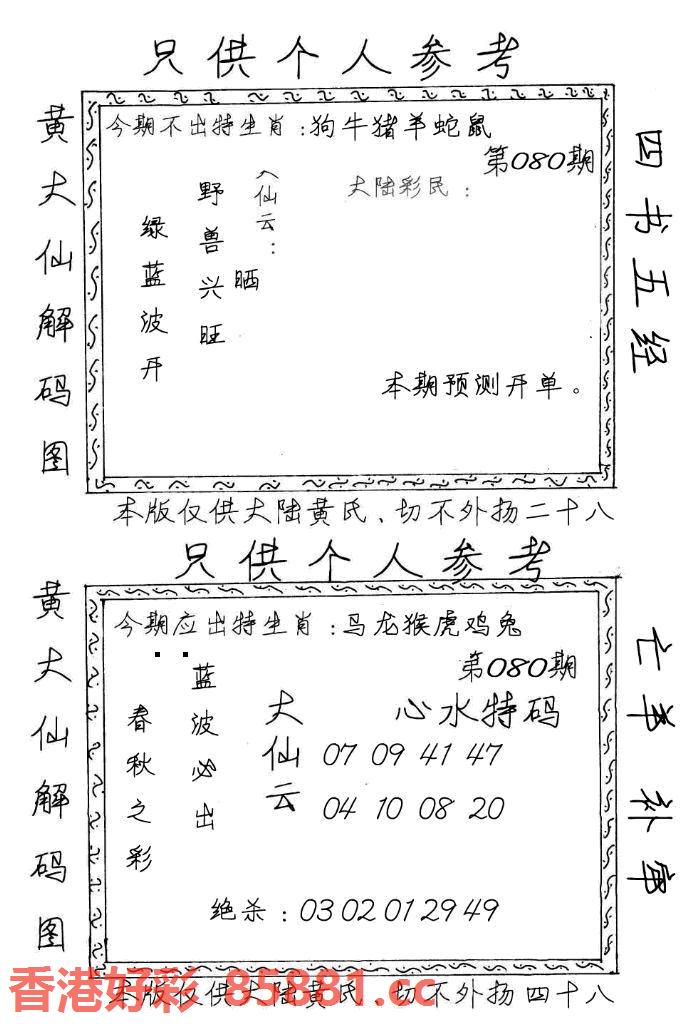 只供个人参考
黄大仙解码图
今期不出特生肖：狗牛猪羊蛇鼠
第080期
大陆彩民：
仙云：
晒
野兽兴旺
绿蓝波开
本期预测开单。
四书五经
本版仅供大陆黄氏、切不外扬二十八
只供个人参考
黄大仙解码图
今期应出特生肖：马龙猴虎鸡兔
第080期
心水特码
大仙云
07 09 41 47
04 10 08 20
蓝波必出
春秋之彩
绝杀：03 02 01 29 49
亡羊补牢
本版仅供大陆黄氏、切不外扬四十八
香港好彩 85881.cc